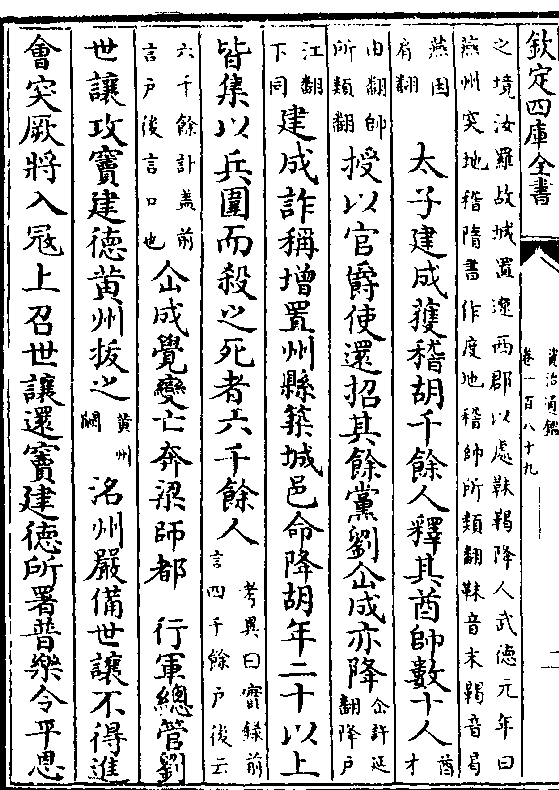 欽定四庫全書
資治通鑑
卷一百八十九
二
之境汝羅故城置遼西郡以處靺鞨降人武德元年曰
燕州突地稽隋書作度地稽帥所類翻靺音末鞨音曷
燕因肩翻 太子建成獲稽胡千餘人釋其酋帥數十人酋才
由翻帥所類翻授以官爵使還招其餘黨劉仚成亦降仚許延翻降戶
江翻下同建成詐稱增置州縣築城邑命降胡年二十以上
皆集以兵圍而殺之死者六千餘人考異曰實録前言四千餘戶後云
六千餘計蓋前言戶後言口也仚成覺變亡奔梁師都 行軍總管劉
世讓攻竇建德黄州拔之黄州闕洺州嚴備世讓不得進
會突厥將入寇上召世讓還竇建德所署普樂令平恩